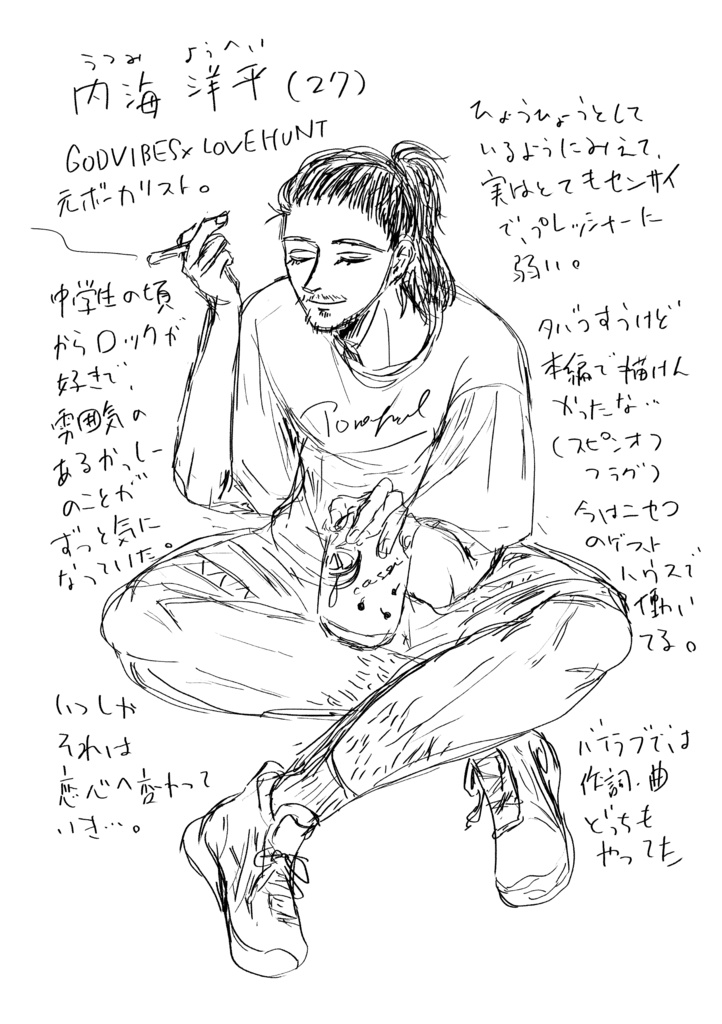 うつみ ようへい
内海 洋平(27)
GODVIBES×LOVEHUNT
元ボーカリスト。
ひょうひょうとして
いるようにみえて、
実はとてもセンサイ
で、プレッシャーに
弱い。
中学生の頃
からロックが
好きで、
雰囲気の
あるかっしー
のことが
ずっと気に
なっていた。
タバコすうけど
本編で描けん
かったな…
(スピンオフ
フラグ)
今はニセコ
のゲスト
ハウスで
働い
てる。
いつしか
それは
恋心へ変わって
いき…。
バイラブでは
作詞・曲
どっちも
やってた